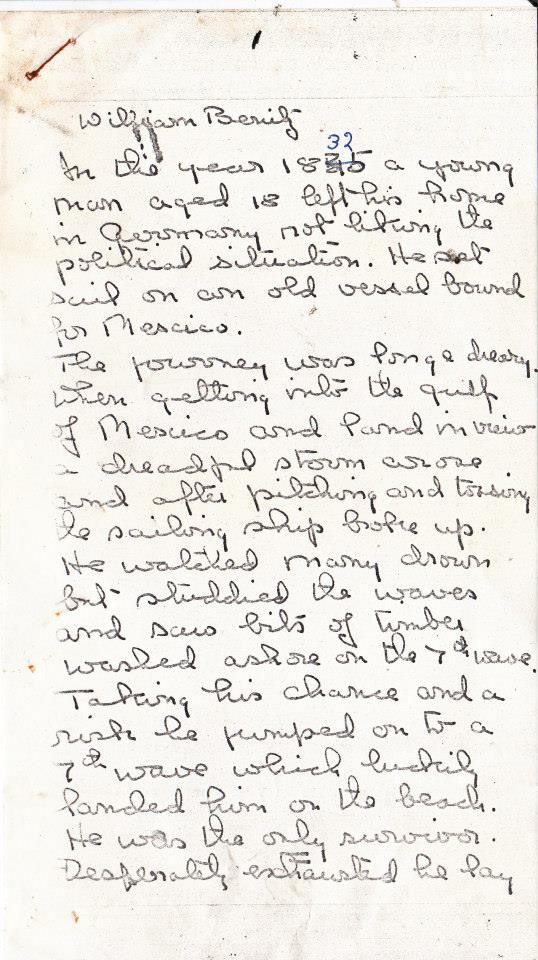 William Benitz
32
In the year 1835 a young
man aged 18 left his home
in Germany not liking the
political situation. He set
sail on an old vessel bound
for Mexcico.
The journey was long & dreary.
When getting into the gulf
of Mexcico and land in view
a dreadful storm arose
and after pitching and tossing
the sailing ship broke up.
He watched many drown
but studdied the waves
and saw bits of timber
washed ashore on the 7th wave.
Taking his chance and a
risk he jumped on to a
7th wave which luckily
landed him on the beach.
He was the only survivor.
Desperately exhausted he lay